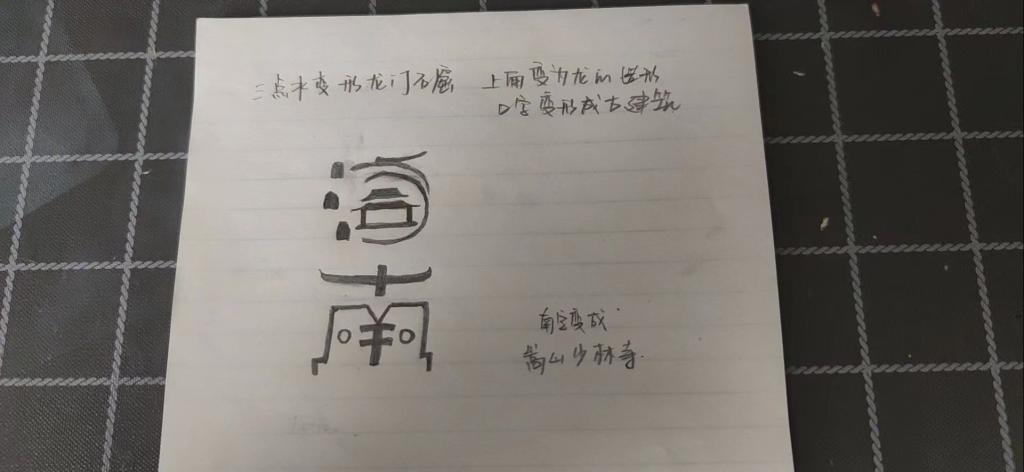 三点水变形龙门石窟 上面变为龙的造形
口字变形成古建筑
河
南
南字变成
嵩山少林寺.